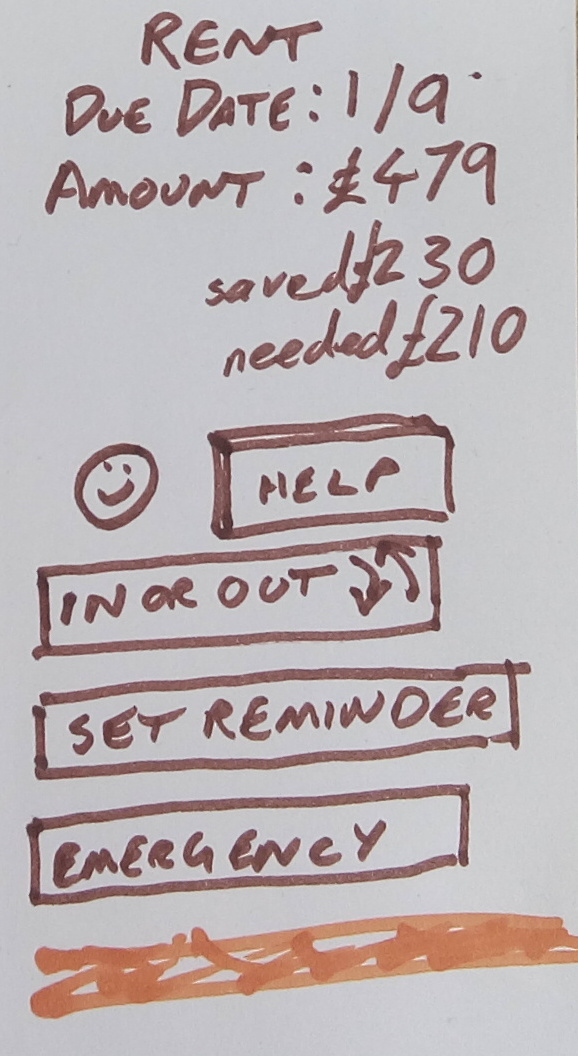 RENT
DUE DATE: 1/9
AMOUNT : £479
saved £230
needed £210
HELP
IN OR OUT
SET REMINDER
EMERGENCY